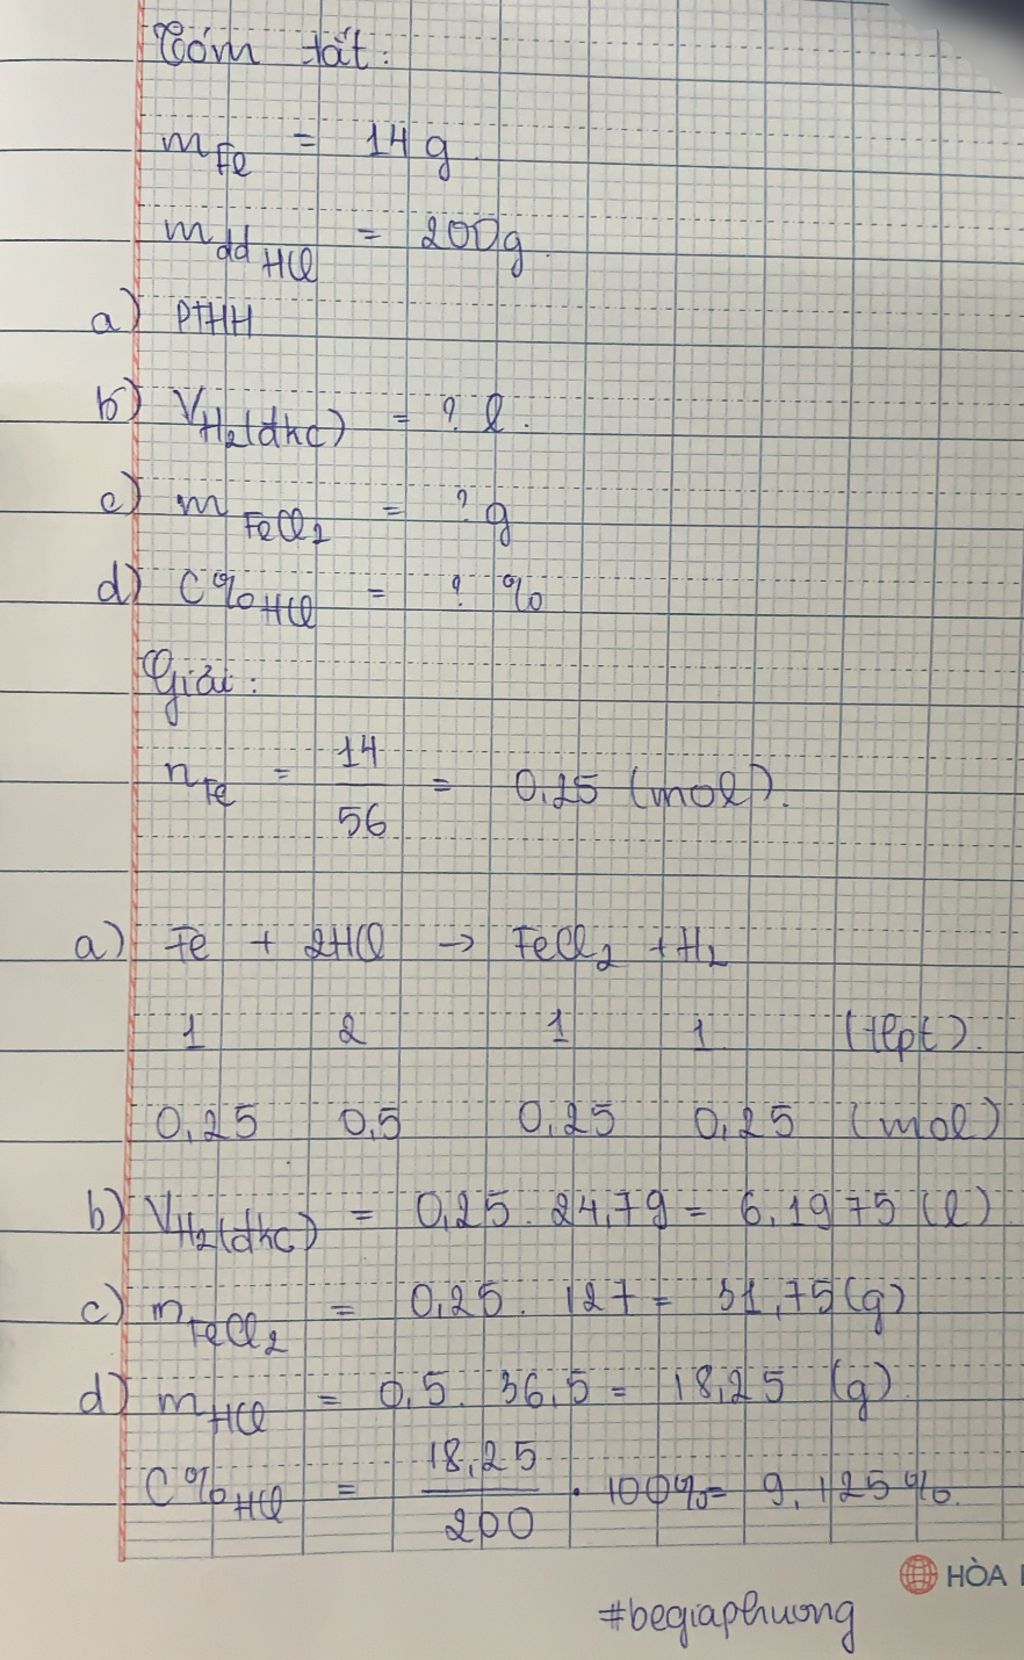 Tóm tắt:
mFe = 14 g
mddHCl = 200g.
a) PTHH
b) VH2(đkc) = ? l.
c) mFeCl2 = ? g
d) C%HCl = ? %
Giải:
nFe = 14/56 = 0,25 (mol).
a) Fe + 2HCl → FeCl2 + H2
1 2 1 1 (tlpt).
0,25 0,5 0,25 0,25 (mol)
b) VH2(đkc) = 0,25. 24,79 = 6,1975 (l)
c) mFeCl2 = 0,25. 127 = 31,75 (g)
d) mHCl = 0,5. 36,5 = 18,25 (g).
C%HCl = 18,25/200 . 100% = 9,125%.
HÒA
#begiaphuong